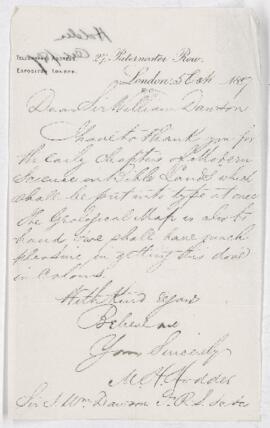 Hodder
Oct 5/87
TELEGRAPHIC ADDRESS
EXPOSITOR LONDON.
27, Paternoster Row,
London: 5 Oct 1887
Dear Sir William Dawson
I have to thank you for
the early chapters of Modern
Science in Bible Lands which
shall be put into type at once
The Geological Map is also to
hand, & we shall have much
pleasure in getting this done
in Colours
With Kind regards
Believe me
Yours Sincerely
M. H. Hodder
Sir J. Wm Dawson F.R.S.